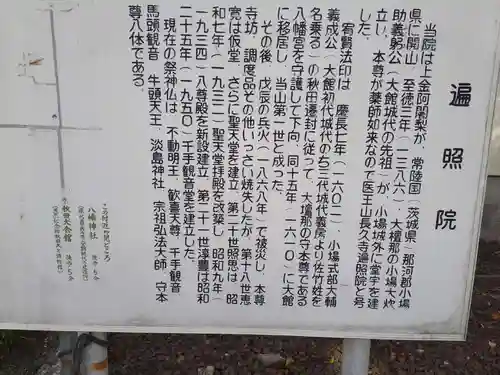 遍照院
当院は上金阿闍梨が、常陸国(茨城県)那珂郡小場
県に開山 至徳三年(一三八六)、大檀那の小場大炊
助義躬公(大館城代の先祖)が、小場城外に堂宇を建
立し、本尊が薬師如来なので医王山長久寺遍照院と号
した。
宥賢法印は 慶長七年(一六〇二) 小場式部大輔
義成公(大館初代城代のち三代城代義房より佐竹姓を
名乗る)の秋田遷封に従って、大壇那の守本尊である
八幡宮を守護して下向、同十五年(一六一〇)に大館
に移居し、当山第一世と成った。
その後 戊辰の兵火(一八六八年)で被災し、本尊
寺坊、調度品などその他いっさい焼失したが、第十八世恵
寛は仮堂 さらに聖天堂を建立、第二十世照恵は 昭
和七年(一九三二)聖天堂拝殿を改築し、昭和九年(
一九三四)八尊殿を新設建立、第二十一世淳豊は昭和
二十五年(一九五〇)千手観音堂を建立した。
現在の祭神仏は 不動明王、歓喜天尊、千手観音
馬頭観音、牛頭天王、淡島神社 宗祖弘法大師、守本
尊八体である。
八幡神社
秋田犬会館